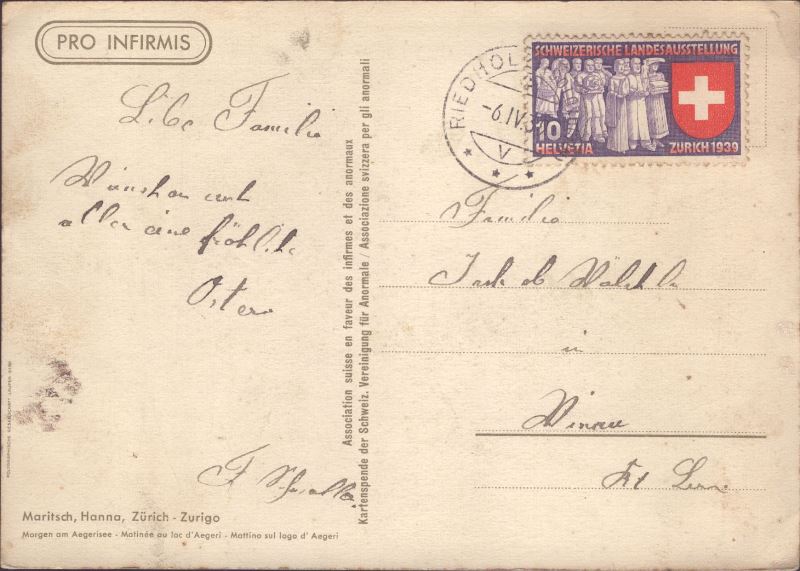 PRO INFIRMIS
Libe Familie
Wünschen euch
allen eine fröhliche
Ostern
F
Maritsch, Hanna, Zürich - Zurigo
Morgen am Aegerisee - Matinée au lac d'Aegeri - Mattino sul lago d'Aegeri
Association suisse en faveur des infirmes et des anormaux
Kartenspende der Schweiz. Vereinigung für Anormale / Associazione svizzera per gli anormali
RIEDHOL
-6.IV.3
V
SCHWEIZERISCHE LANDESAUSSTELLUNG
10
HELVETIA ZURICH 1939
Familie
Jakob Wälchli
in
Winau
Kt Bern